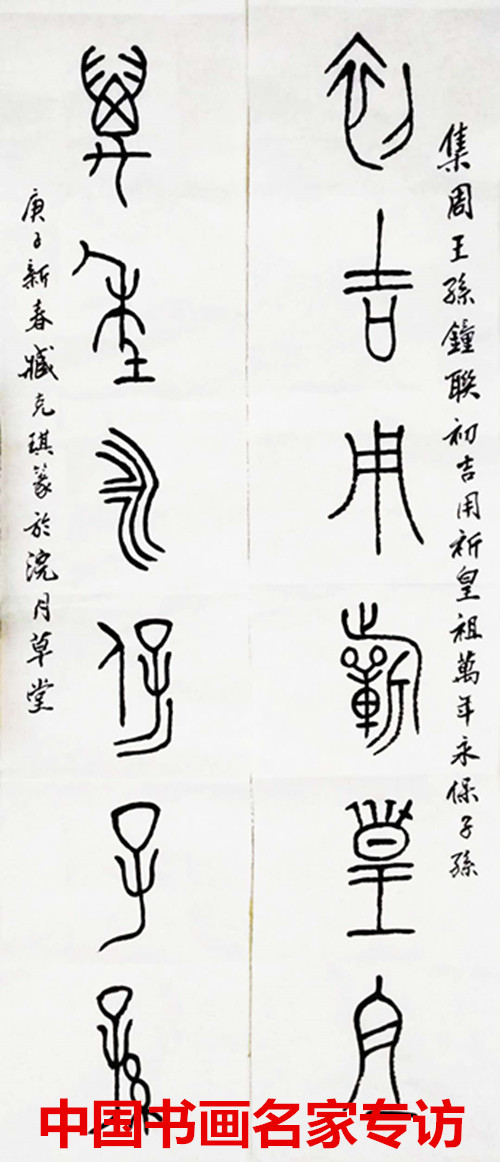 集周王孫鐘聯初吉用祈皇祖萬年永保子孫
初吉用祈皇祖
萬年永保子孫
庚子新春臧克琪篆於浣月草堂
中国书画名家专访